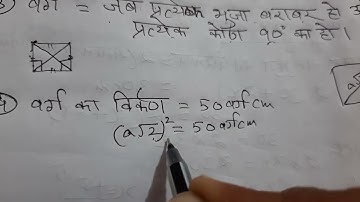 3) वर्ग = जब प्रत्येक भुजा बराबर हो
प्रत्येक कोण 90° का हो।
वर्ग का विकर्ण = 50 वर्ग cm
(a√2)² = 50 वर्ग cm